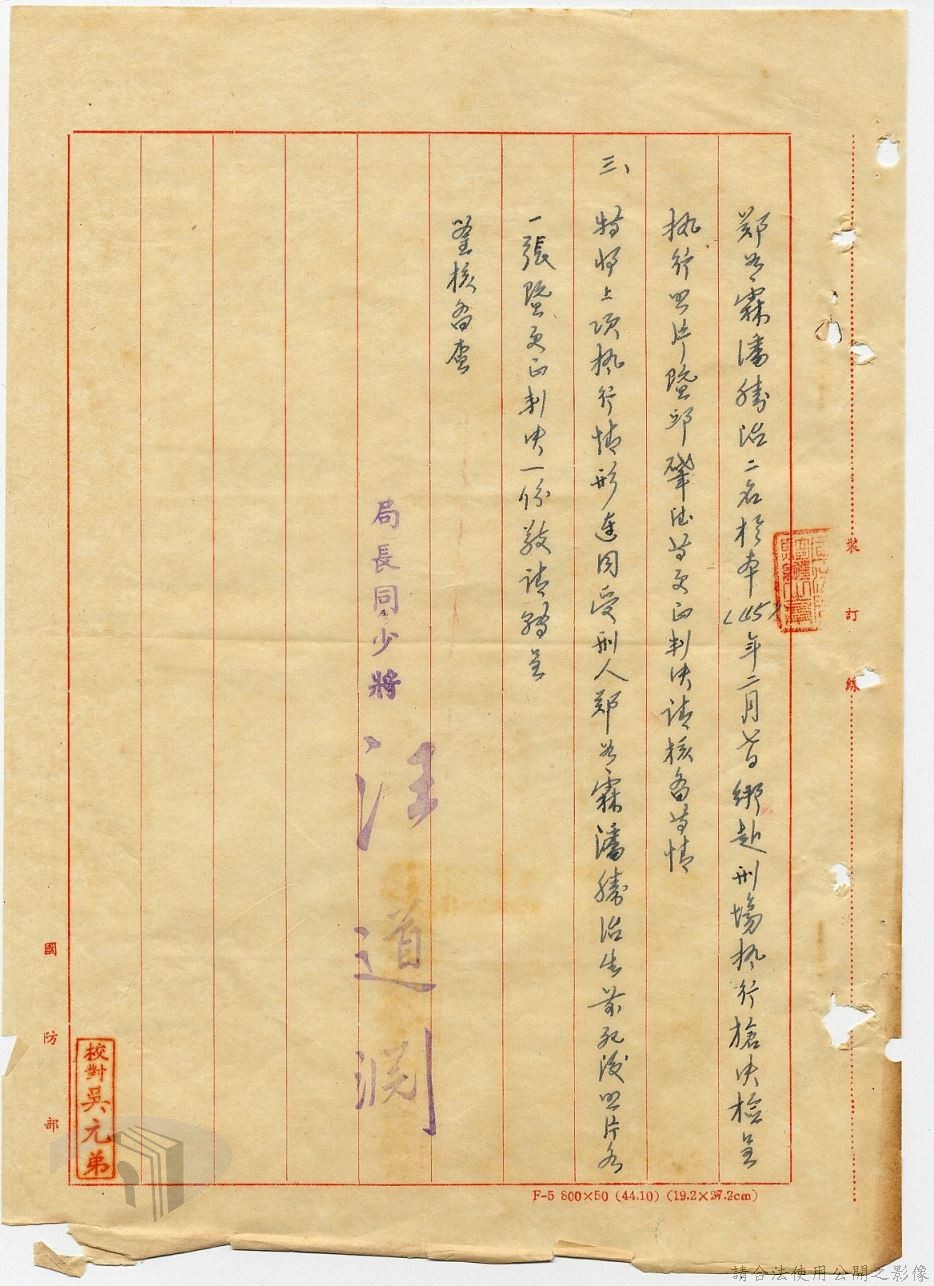 鄭名霖潘勝治二名於本(45)年二月廿綁赴刑場執行槍决檢呈
執行照片暨邱肇德等更正判决請核备等情
三、特將上項執行情形連同受刑人鄭名霖潘勝治生前死後照片各
一張暨更正判决一份敬請轉呈
鑒核备查
局長同少將 汪道淵
裝訂線
國防部
校對吳元弟
F-5 800×50 (44.10) (19.2×27.2cm)
請合法使用公開之影像